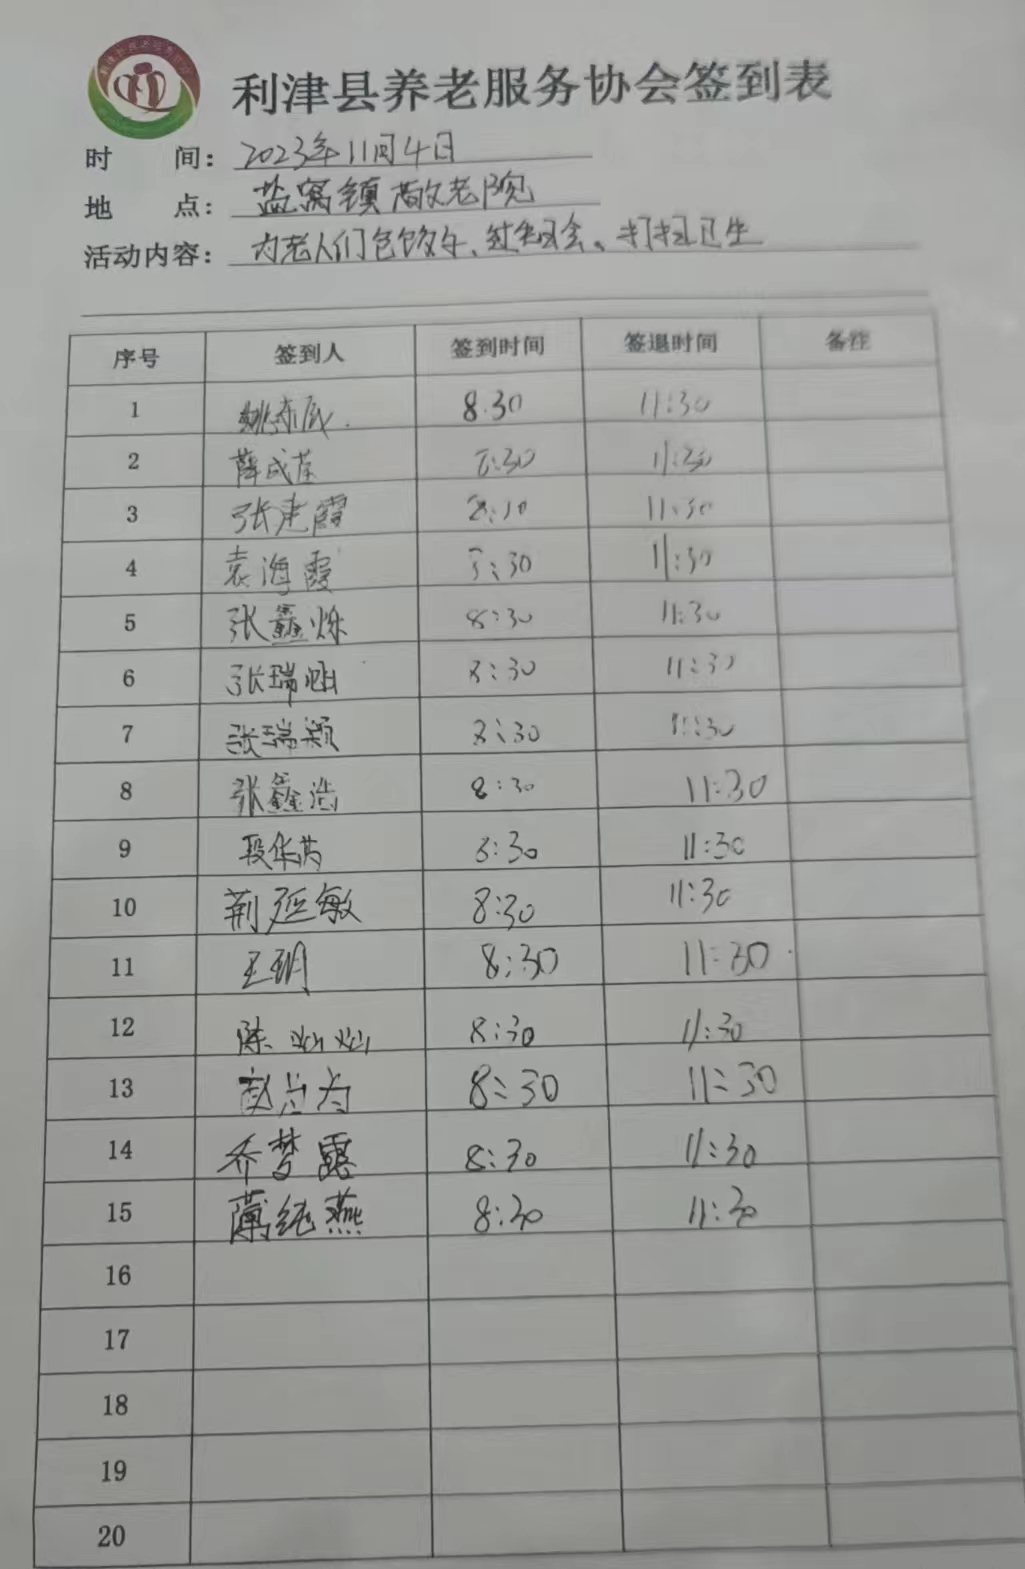 利津县养老服务协会签到表
时 间：2023年11月4日
地 点：盐窝镇敬老院
活动内容：为老人们包饺子、过生日会、打扫卫生
序号 签到人 签到时间 签退时间 备注
1 8.30 11:30
2 薛成 :30 11:30
3 张建霞 11:30
4 袁海霞 :30 11:30
5 张鑫烁 8:30 11:30
6 张瑞 8:30 11:30
7 张瑞颖 8:30 11:30
8 张鑫浩 8:30 11:30
9 段华 8:30 11:30
10 荆延敏 8:30 11:30
11 王玥 8:30 11:30
12 陈灿灿 8:30 11:30
13 赵 8:30 11:30
14 乔梦露 8:30 11:30
15 纯燕 8:30 11:30
16
17
18
19
20